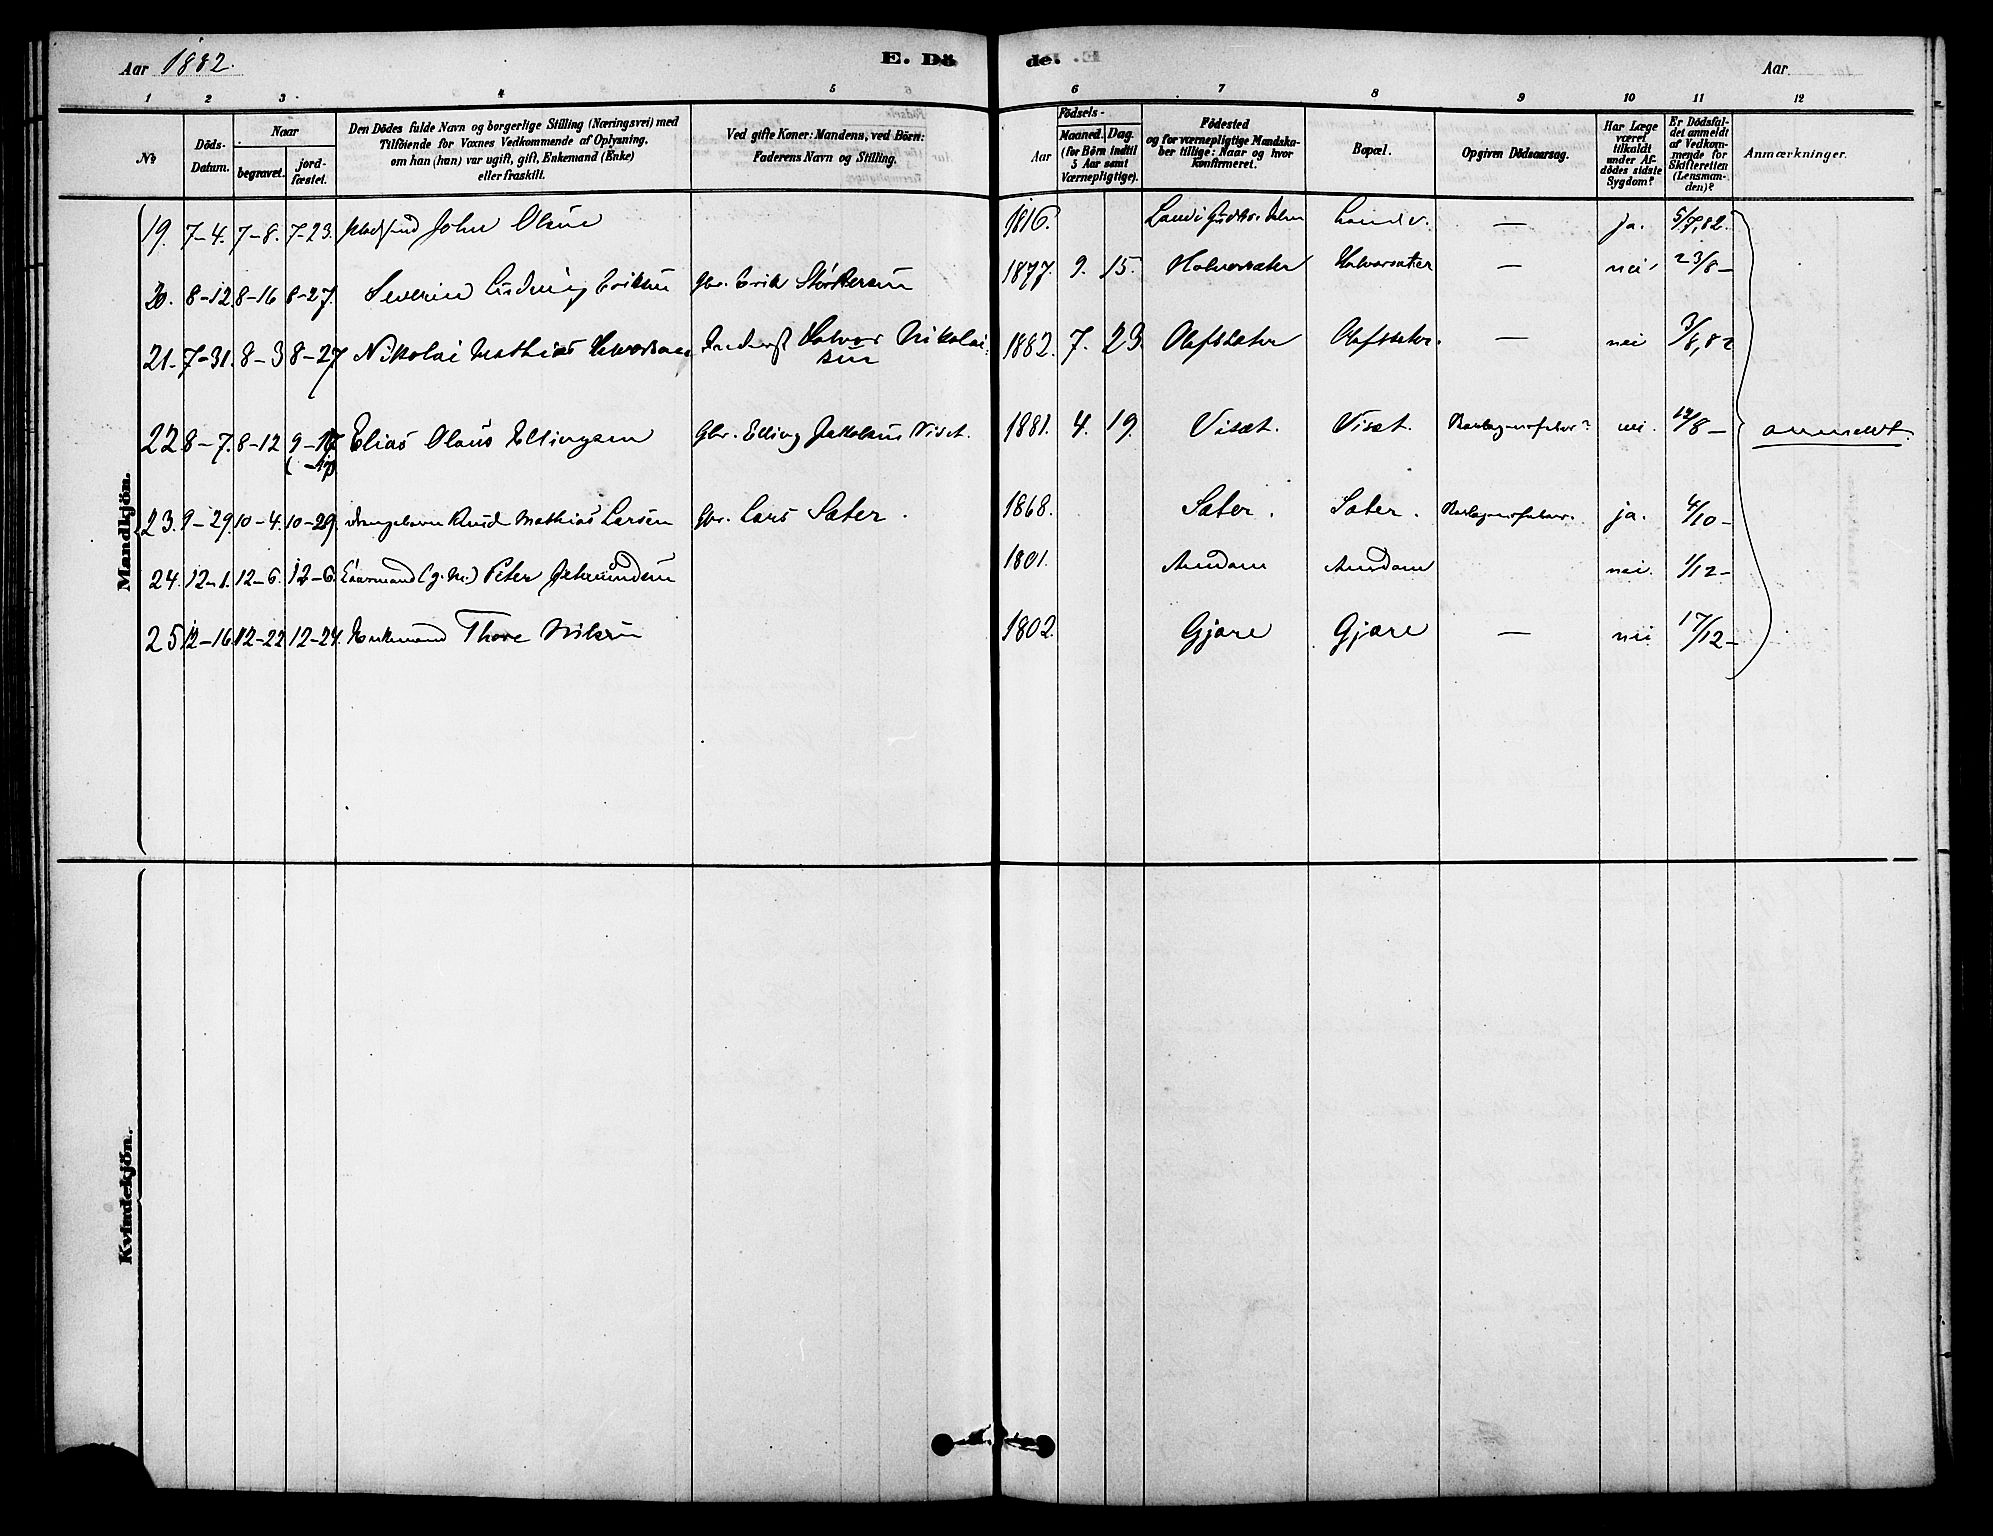 Aar 1882.
E. Dö de.
Aar
1 2 3 4 5 6 7 8 9 10 11 12
No
Döds-Datum.
Naar
begravet.
jord-fæstet.
Den Dödes fulde Navn og borgerlige Stilling (Næringsvei) med
Tilföiende for Voxnes Vedkommende af Oplysning,
om han (hun) var ugift, gift, Enkemand (Enke)
eller fraskilt.
Ved gifte Koner: Mandens, ved Börn:
Faderens Navn og Stilling.
Födsels-
Aar
Maaned. Dag.
(for Börn indtil
5 Aar samt
Værnepligtige).
Födested
og for værnepligtige Mandska-
ber tillige: Naar og hvor
konfirmeret.
Bopæl.
Opgiven Dödsaarsag.
Har Læge
været
tilkaldt
under Af-
dödes sidste
Sygdom?
Er Dödsfal-
det anmeldt
af Vedkom-
mende for
Skifteretten
(Lensman-
den)?
Anmærkninger.
Mandkjön.
19. 7-4. 7-8. 7-23. John Olsen 1816. ja. 5/7,82.
20. 8-12 8-16 8-27. Severin Ludvig Eriksen Gbr. Erik Størkersen 1877. 9. 15. Halvorsæter Halvorsæter — nei 23/8 —
21. 7-31. 8-3 8-27 Nikolai Mathias Halvorsen Inderst Halvor Nikolai-
sen 1882. 7. 23. Olafsæter Olafsæter. — nei 3/8,82
22 8-7. 8-12 9-17 Elias Olaus Ellingsen Gbr. Elling Jakobsen Viset. 1881. 4. 19. Visæt. Visæt. nei. 12/8 — anmeldt.
23. 9-29. 10-4. 10-29. Drengebarn Knud Mathias Larsen Gbr. Lars Sæter. 1868. Sæter. Sæter. ja. 4/10 —
24. 12-1. 12-6. 12-6. Kaarmand (g. M.) Peter 1801. Aurdam Aurdam nei. 1/12 —
25 12-16. 12-22 12-24. Enkemand Thore Nilsen 1802. Gjære Gjære — nei 17/12 —
Kvindekjön.